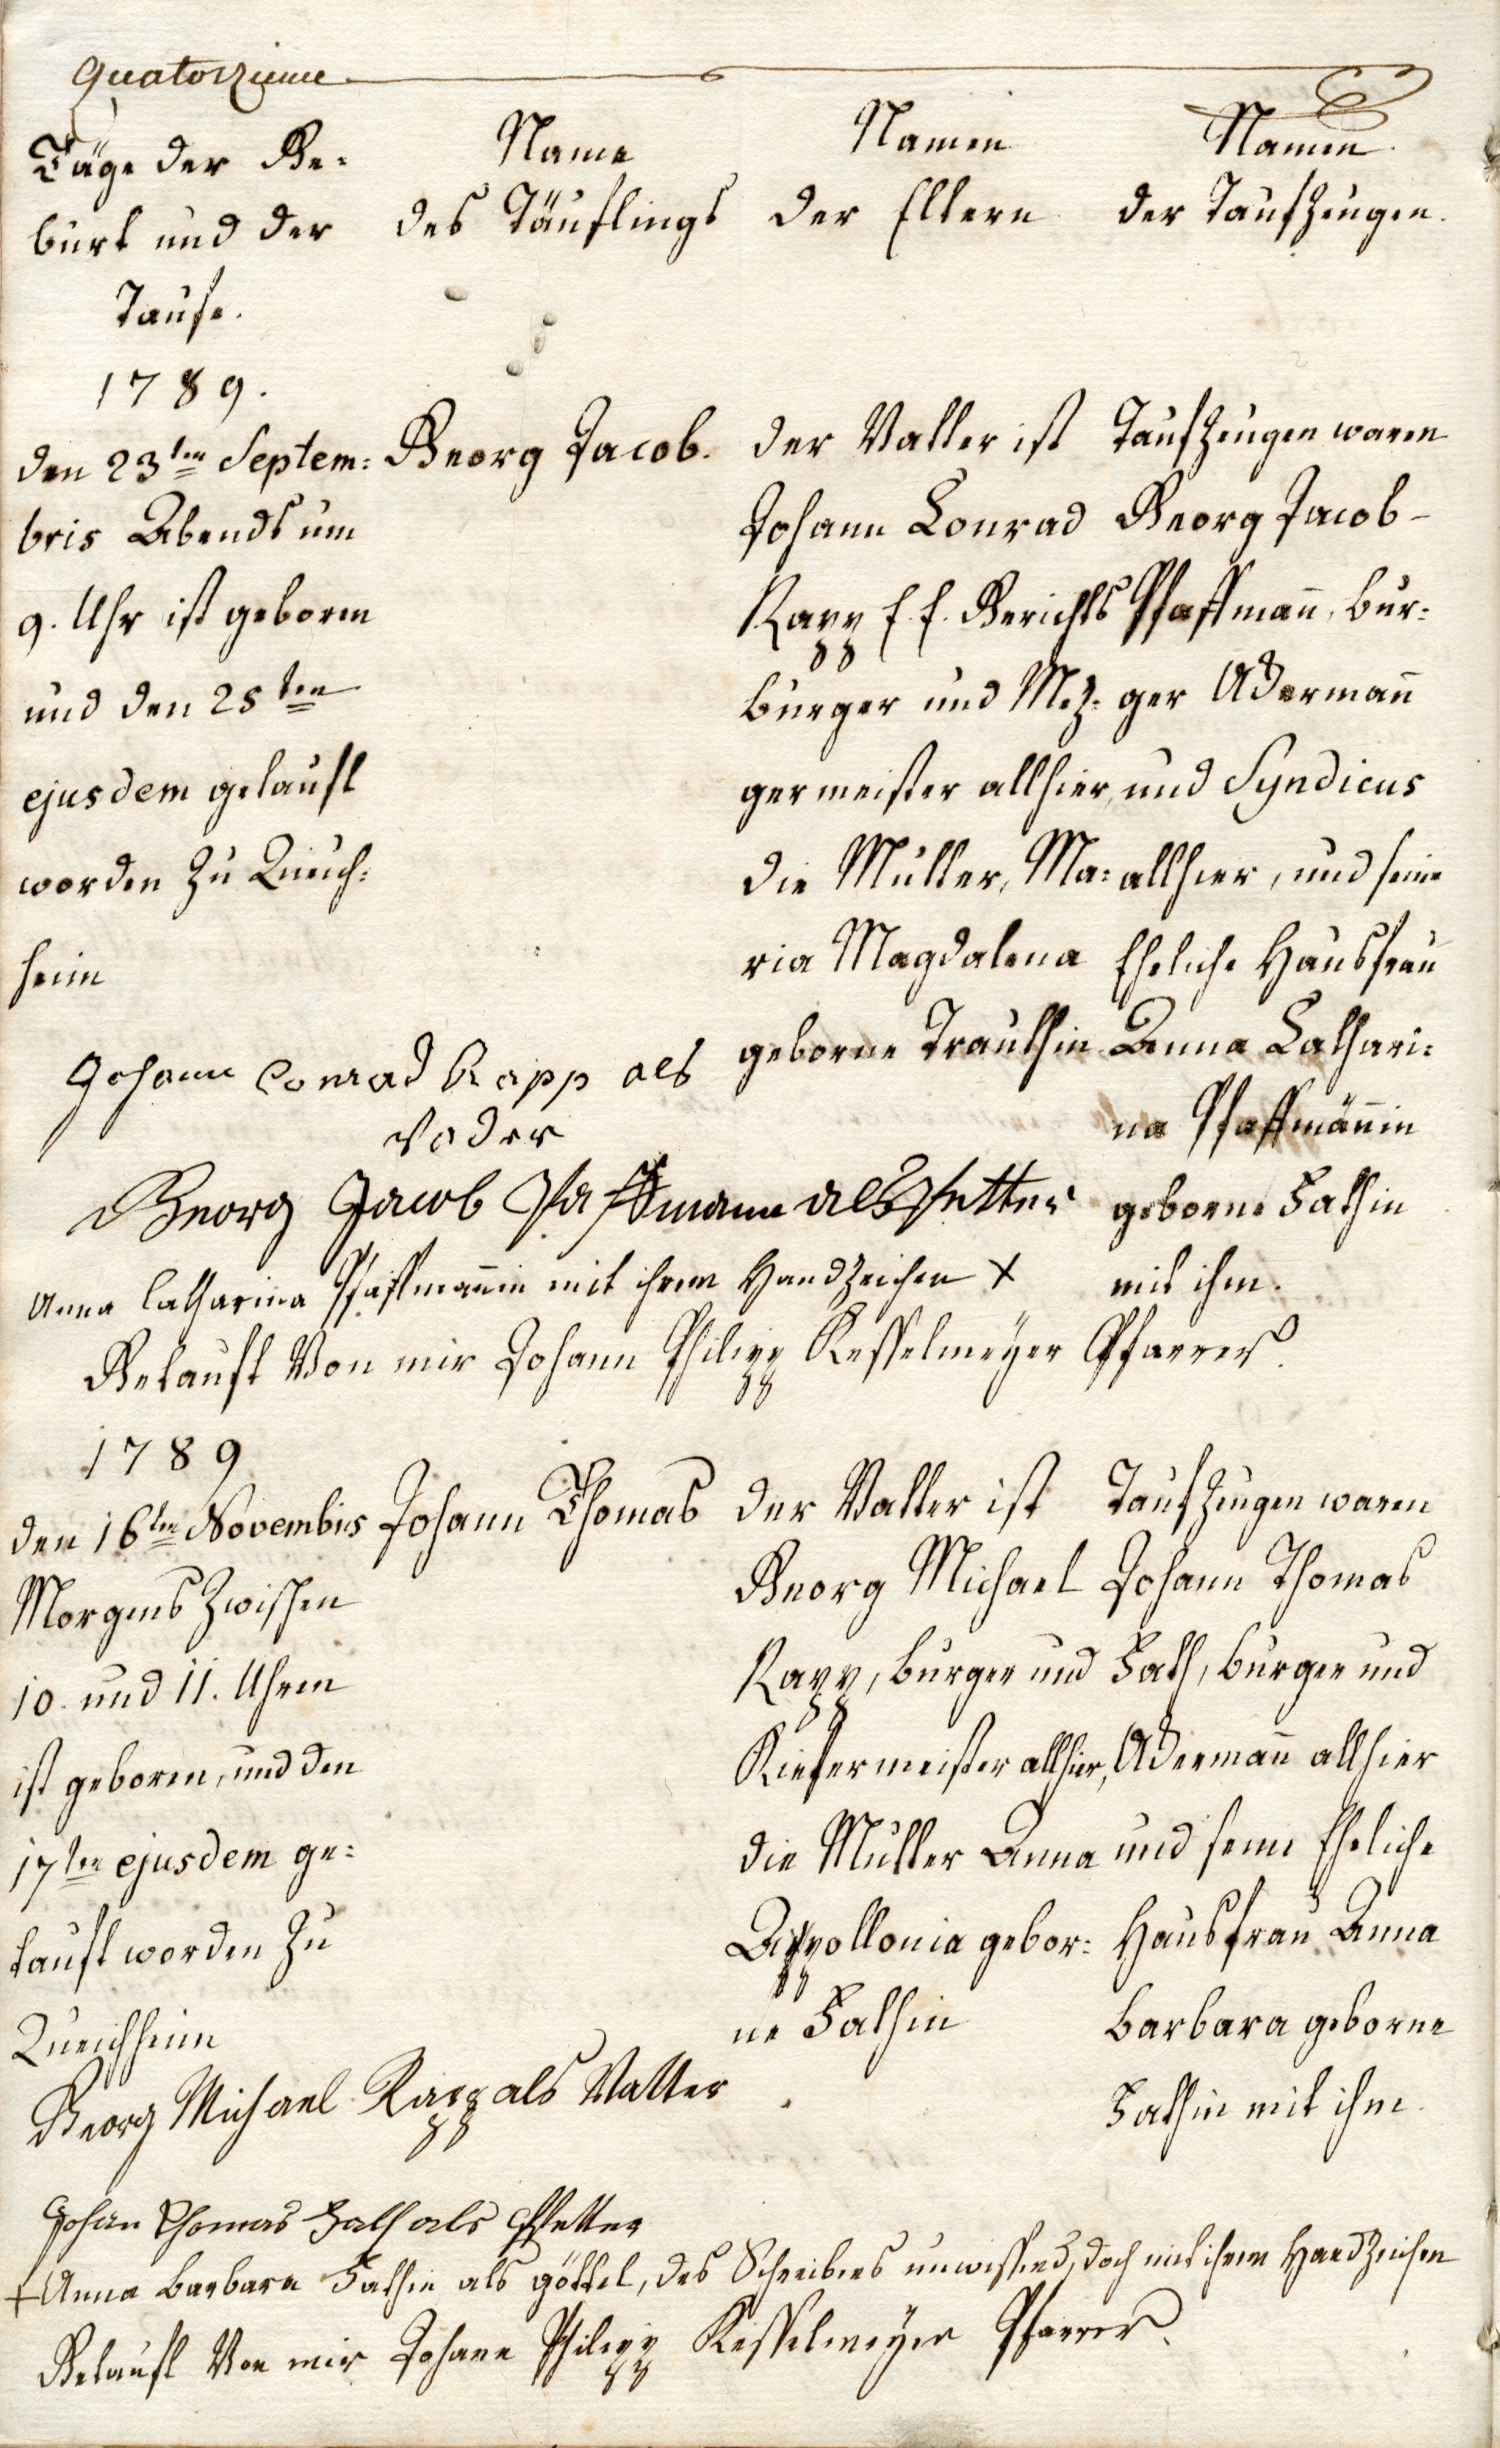 quatorzieme
Täge der Ge=
burt und der
Taufe.
1789.
Name
des Täuflings
Namen
der Eltern
Namen
der Taufzeugen.
den 23ten Septem=
bris Abends um
9. Uhr ist geboren
und den 25ten
ejusdem getauft
worden zu Queich=
heim
Georg Jacob.
der Vatter ist
Johann Conrad
Rapp E. E. Gerichts
burger und Mez=
germeister allhier,
die Mutter, Ma=
ria Magdalena
geborne Trauthin
Taufzeugen waren
Georg Jacob
Pfaffmann, bur=
ger Ackermann
und Syndicus
allhier, und seine
Eheliche Hausfrau
Anna Cathari=
na Pfaffmännin
geborne Fathin
mit ihm.
Johann Conrad Rapp als
Vader
Georg Jacob Pfaffmann als Petter
Anna Catharina Pfaffmannin mit ihrem Handzeichen +
Getauft Von mir Johann Philipp Kesselmeyer Pfarrer.
1789
den 16ten Novembris
Morgens zwischen
10. und 11. Uhren
ist geboren, und den
17ten ejusdem ge=
tauft worden zu
Queichheim
Johann Thomas
der Vatter ist
Georg Michael
Rapp, burger und
Kiefermeister allhier,
die Mutter Anna
Appollonia gebor=
ne Fathin
Taufzeugen waren
Johann Thomas
Fath, burger und
Ackermann allhier
und seine Eheliche
Hausfrau Anna
Barbara geborne
Fathin mit ihm.
Georg Michael Rapp als Vatter
Johan Thomas Fath als Pfetter
+ Anna Barbara Fathin als göttel, des Schreibens unwissend, doch mit ihrem Handzeichen
Getauft Von mir Johann Philipp Kesselmeyer Pfarrer.